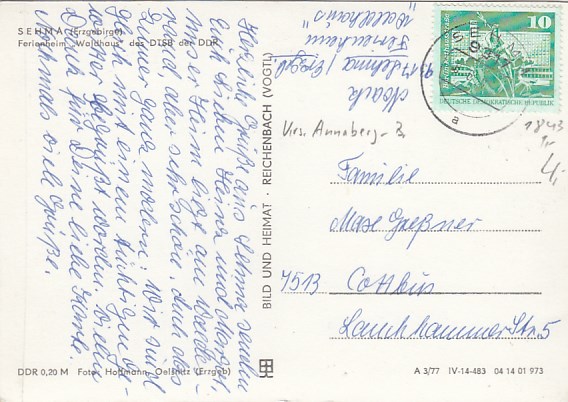 SEHMA (Erzgebirge)
Ferienheim "Waldhaus" des DTSB der DDR
Herzliche Grüße aus Sehma senden
Dir lieben Heiner und Margit.
Unser Heim liegt am Walde,
nicht aber sehr schön, auch das
Zimmer ganz modern. Wir sind
gleich mit einem tüchtigen Re-
gen begrüßt worden. Vielen
Dank für Deine liebe Karte.
Nochmals viele Grüße.
BILD UND HEIMAT · REICHENBACH (VOGTL)
Noack
9317 Sehma / Erzgb.
Ferienheim
"Waldhaus"
SEHMA
9317
a
10
DEUTSCHE DEMOKRATISCHE REPUBLIK
Krs. Annaberg-B.
1843
4,-
Familie
Max Greßner
7513 Cottbus
Lauchhammerstr. 5
DDR 0,20 M Foto: Hoffmann, Oelsnitz (Erzgeb)
A 3/77 IV-14-483 04 14 01 973